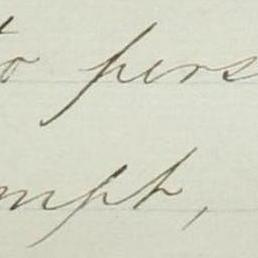 to pers
mpt,